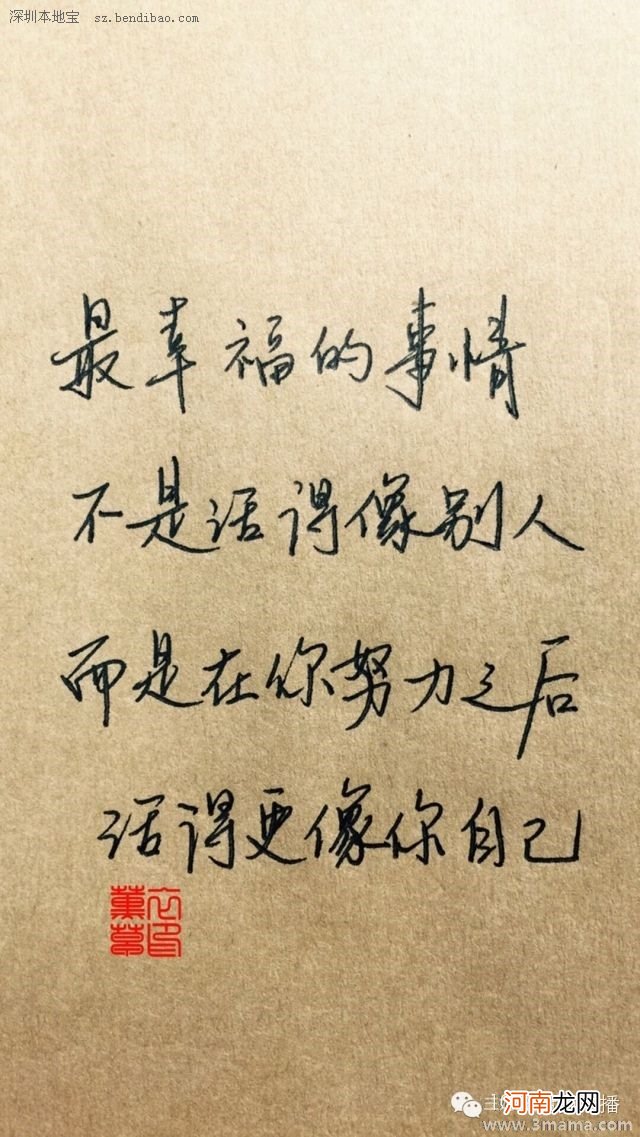 深圳本地宝 sz.bendibao.com
最幸福的事情
不是活得像别人
而是在你努力之后
活得更像你自己
河南龙网
播
www.3mama.com